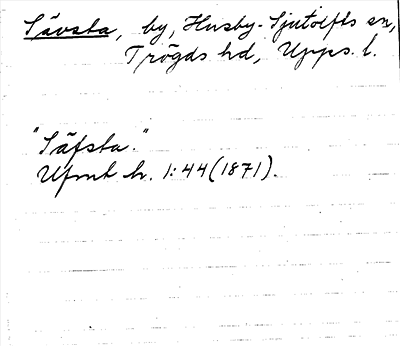 Sävsta, by, Husby-Sjutolfts sn,
Trögds hd, Upps. l.
"Säfsta."
Ufmt h. 1:44 (1871).